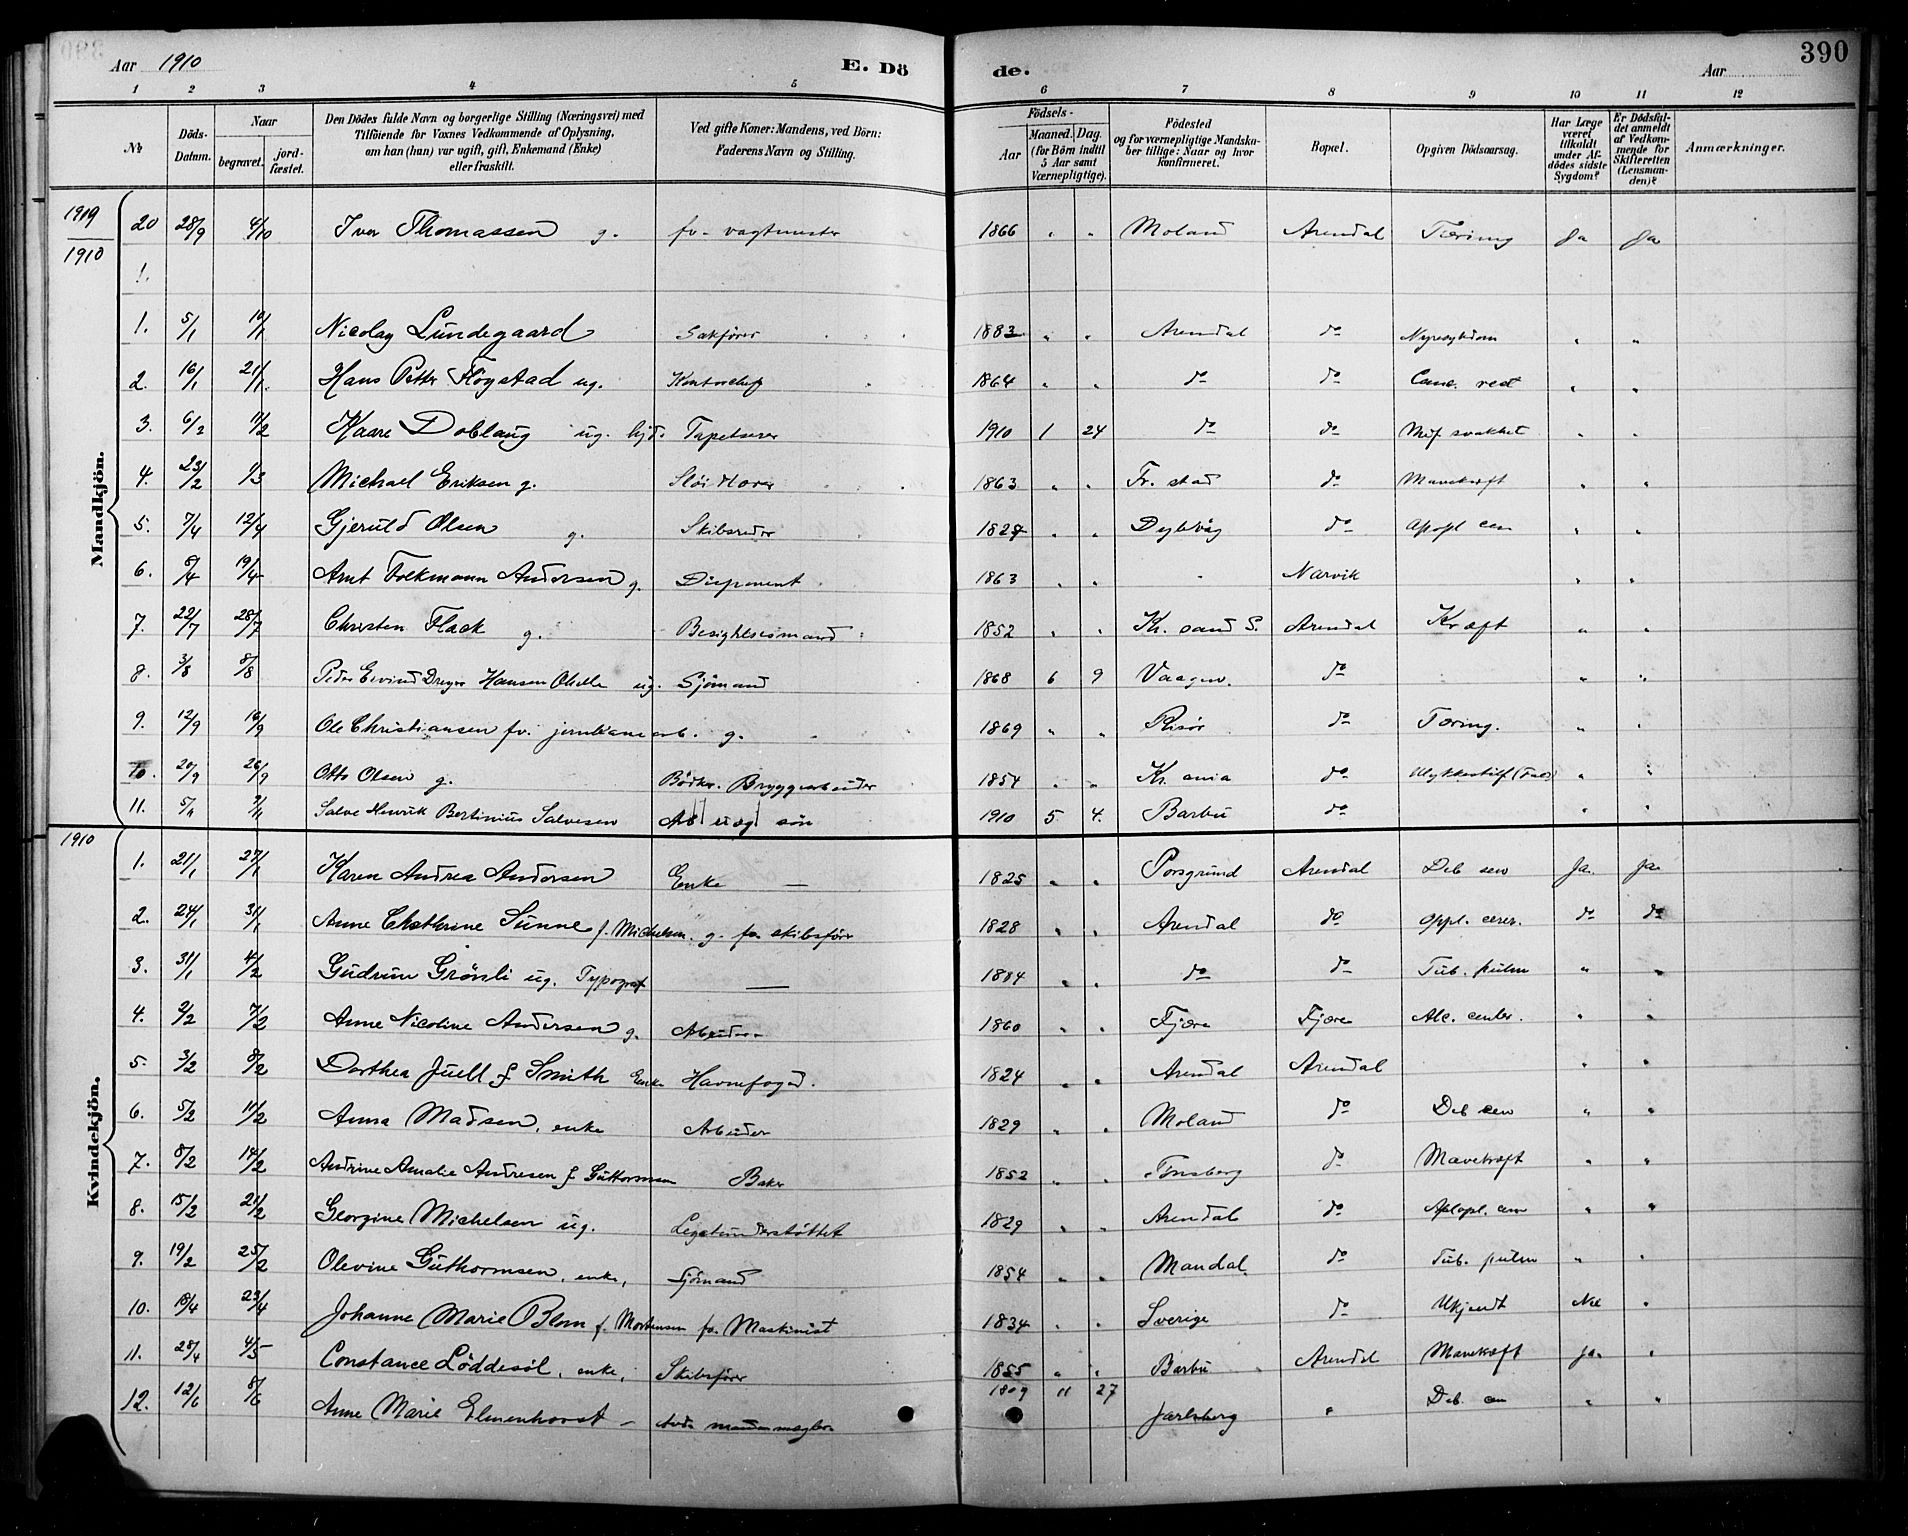 390
Aar 1910 E. Dö de. Aar
1 2 3 4 5 6 7 8 9 10 11 12
No Döds-Datum. Naar begravet. jordfæstet. Den Dödes fulde Navn og borgerlige Stilling (Næringsvei) med Tilföiende for Voxnes Vedkommende af Oplysning, om han (hun) var ugift, gift, Enkemand (Enke) eller fraskilt. Ved gifte Koner: Mandens, ved Börn: Faderens Navn og Stilling. Födsels- Aar Maaned. Dag. (for Börn indtil 5 Aar samt Værnepligtige). Födested og for værnepligtige Mandskaber tillige: Naar og hvor konfirmeret. Bopæl. Opgiven Dödsaarsag. Har Læge været tilkaldt under Afdödes sidste Sygdom? Er Dödsfaldet anmeldt af Vedkommende for Skifteretten (Lensmanden)? Anmærkninger.
1909 20 28/9 4/10 Iver Thomassen g. fv. vagtmester 1866 " " Moland Arendal Tæring Ja Ja
1910
1.
Mandkjön.
1. 5/1 10/1 Nicolay Lundegaard Sakförer 1883 " " Arendal do Nyresykdom " "
2. 16/1 21/1 Hans Petter Flögstad ug. Kontorchef 1864 " " do do " "
3. 6/2 11/2 Kaare Doblaug ug. hjd. Tapetserer 1910 1 24 do do Mf. svakhet " "
4. 23/2 1/3 Michael Eriksen g. 1863 " " Fr. stad do Mavekræft " "
5. 7/4 12/4 Gjeruld Olsen g. Skibsreder 1827 " " Dybvåg do Apopl cer " "
6. 8/4 19/4 Arnt Folkmann Andersen g. Disponent 1863 " " " Narvik " "
7. 22/7 28/7 Christen Flack g. Besigtelsesmand 1852 " " Kr. sand S. Arendal Kræft " "
8. 3/8 8/8 Peder Eivind Dreyer Hansen ug. Sjömand 1868 6 9 do " "
9. 12/9 16/9 Ole Christiansen fv. jernbanearb. g. 1869 " " Risör do Tæring. " "
10. 20/9 26/9 Otto Olsen g. Bödker. Bryggearbeider 1854 " " Kr. ania do Ulykkestilf (Fald) " "
11. 5/11 9/11 Salve Henrik Bertinius Salvesen sön 1910 5 4. Barbu do " "
1910
Kvindekjön.
1. 21/1 27/1 Karen Andrea Andersen Enke — 1825 " " Porsgrund Arendal Deb sen Ja. Ja.
2. 24/1 31/1 Anne Cathrine Sunne f. Michelsen. g. fv. skibsförer 1828 " " Arendal do Appl. cerer. do do
3. 31/1 4/2 Gudrun Grönli ug. Typograf — 1884 " " do do Tub. pulm " "
4. 2/2 7/2 Anne Nicoline Andersen g. Arbeider 1860 " " Fjære Fjære " "
5. 3/2 8/2 Dorthea Juell f Smith Enke Havnefoged. 1824 " " Arendal Arendal " "
6. 5/2 11/2 Anna Madsen, enke Arbeider 1829 " " Moland do Deb sen " "
7. 8/2 14/2 Andrine Amalie Andresen f Guttormsen Baker 1852 " " Tönsberg do Mavekræft " "
8. 15/2 21/2 Georgine Michelsen ug. Legatunderstöttet 1829 " " Arendal do Apopl. cer " "
9. 19/2 25/2 Olevine Guthormsen, enke, Sjömand 1854 " " Mandal. do Tub. pulm " "
10. 18/4 23/4 Johanne Marie Blom f. Mortensen fv. Maskinist 1834 " " Sverige do Ukjendt Nei "
11. 28/4 4/5 Constance Löddesöl, enke, Skibsförer 1855 " " Barbu Arendal Mavekræft Ja. "
12. 12/6 8/6 Anne Marie Elmenhorst — 1809 11 27 Jarlsberg " Deb. sen " "